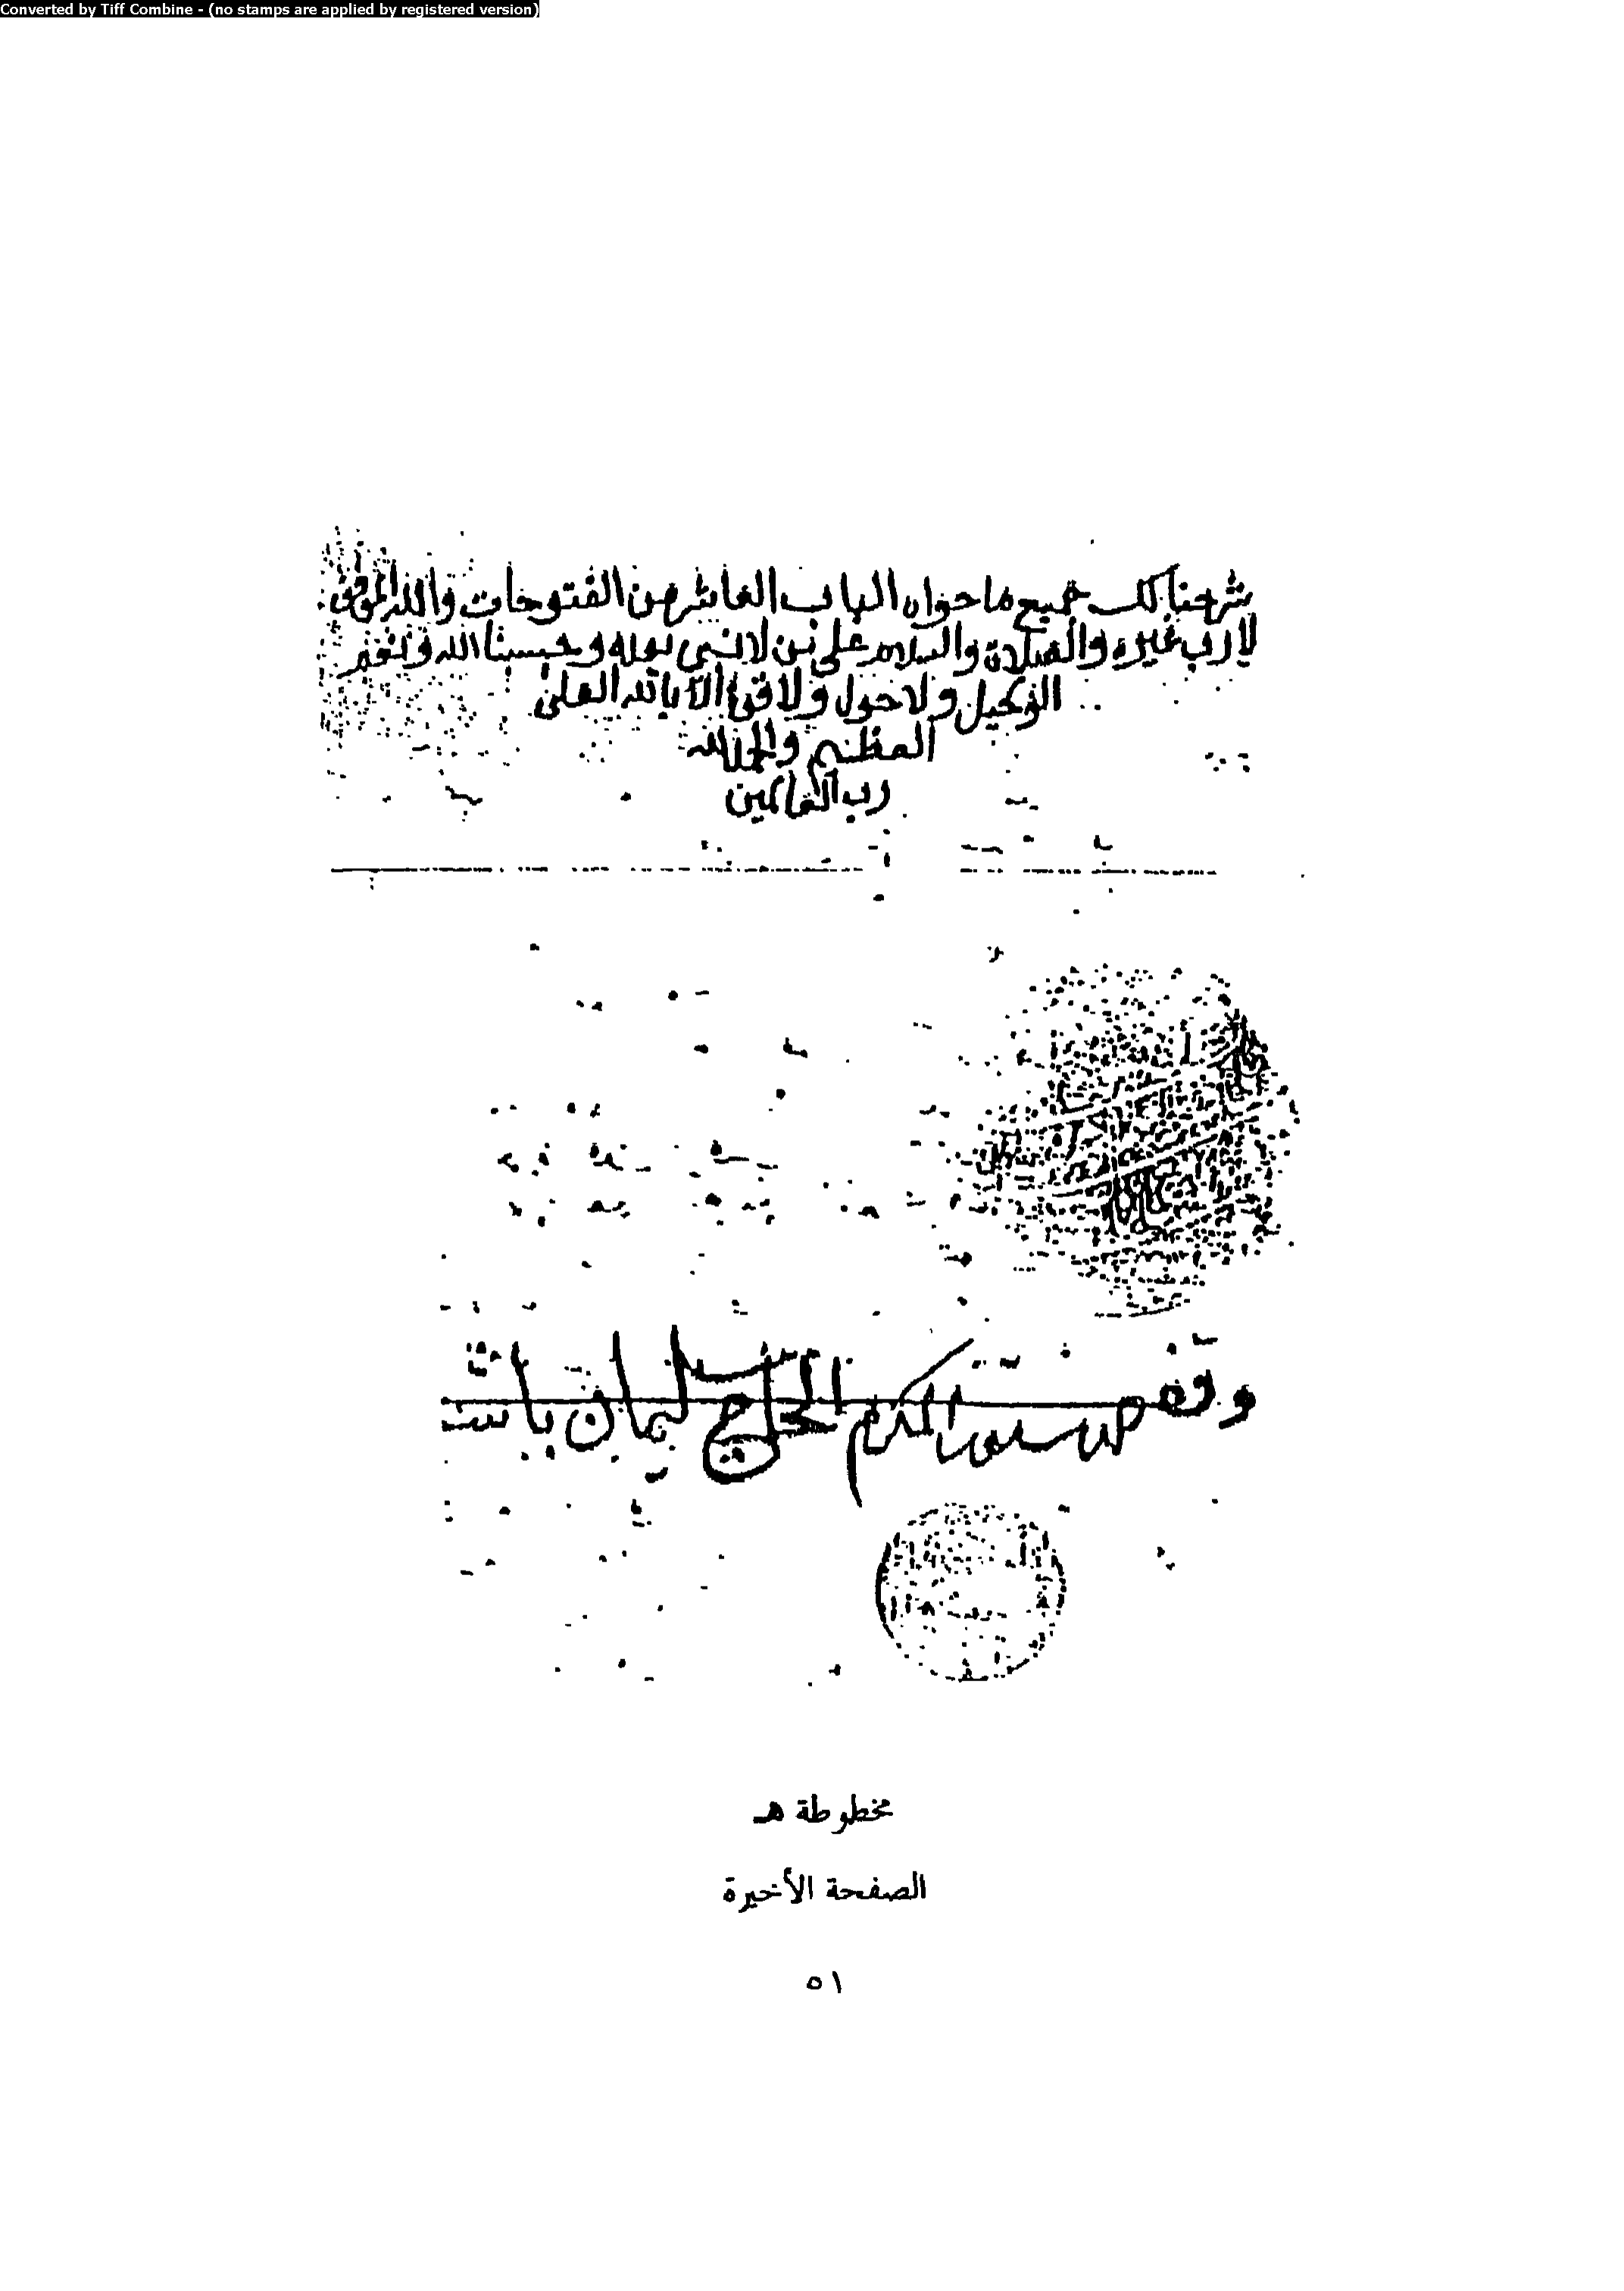 Converted by Tiff Combine - (no stamps are applied by registered version)
شرحنا لك جميع ما حواه الباب العاشر من الفتوحات والله الموفق
لا رب غيره والصلاة والسلام على من لا نبي بعده وحسبنا الله ونعم
الوكيل ولا حول ولا قوة الا بالله العلى
العظيم والحمد لله
رب العالمين
وقف الحاج سليمان باشا
مخطوطة هـ
الصفحة الأخيرة
٥١